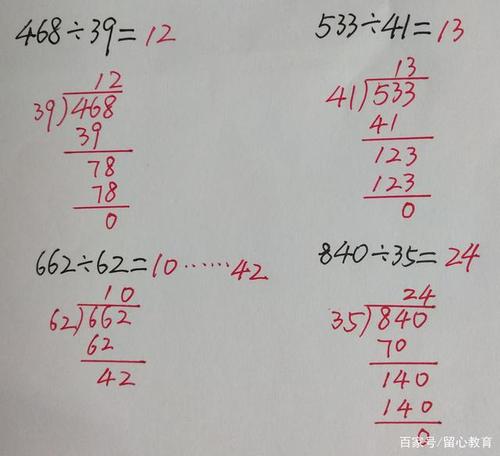 468÷39=12
12
39)468
39
78
78
0
533÷41=13
13
41)533
41
123
123
0
662÷62=10……42
10
62)662
62
42
840÷35=24
24
35)840
70
140
140
0
百家号/留心教育